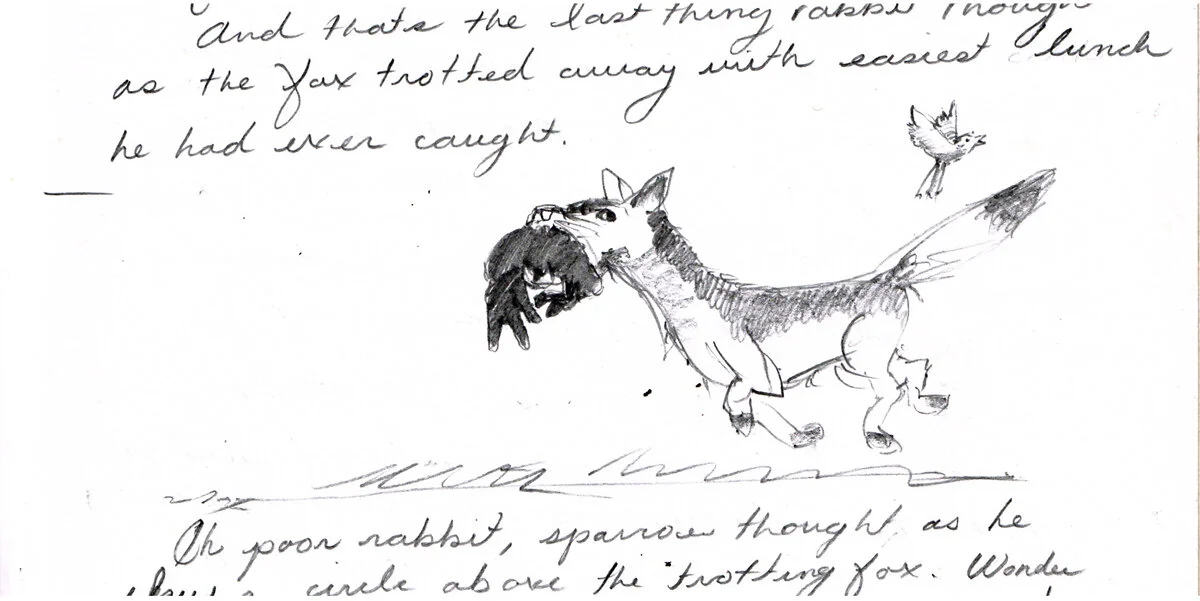 And thats the last thing rabbit though
as the fox trotted away with easiest lunch
he had ever caught.
Oh poor rabbit, sparrow thought as he
circle above the trotting fox. Wonder